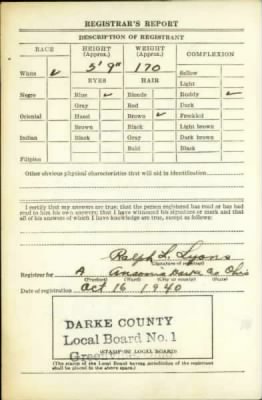 REGISTRAR'S REPORT
DESCRIPTION OF REGISTRANT
RACE HEIGHT (Approx.) WEIGHT (Approx.) COMPLEXION
5' 9" 170
White ✓ Sallow
EYES HAIR Light
Negro Blue ✓ Blonde Ruddy ✓
Gray Red Dark
Oriental Hazel Brown ✓ Freckled
Brown Black Light brown
Indian Black Gray Dark brown
Bald Black
Filipino
Other obvious physical characteristics that will aid in identification
I certify that my answers are true; that the person registered has read or has had
read to him his own answers; that I have witnessed his signature or mark and that
all of his answers of which I have knowledge are true, except as follows:
Ralph L. Lyons
(Signature of registrar)
Registrar for A Ansonia Darke Co Ohio
(Precinct) (Ward) (City or county) (State)
Date of registration Oct 16 1940
DARKE COUNTY
Local Board No. 1
(STAMP OF LOCAL BOARD)
(The stamp of the Local Board having jurisdiction of the registrant
shall be placed in the above space.)